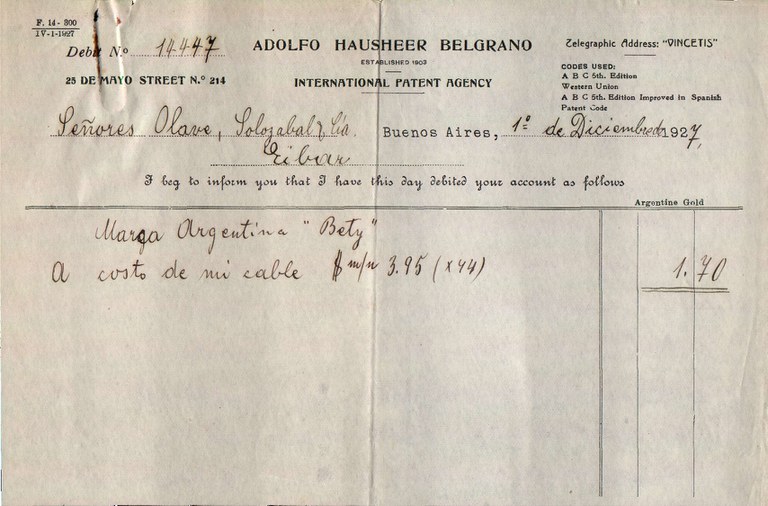 F. 14 - 300
IV-1-1927
Debit N.º 14447
ADOLFO HAUSHEER BELGRANO
ESTABLISHED 1903
INTERNATIONAL PATENT AGENCY
25 DE MAYO STREET N.º 214
Telegraphic Address: "VINCETIS"
CODES USED:
A B C 5th. Edition
Western Union
A B C 5th. Edition Improved in Spanish
Patent Code
Señores Olave, Solozabal y Cía.
Eibar
Buenos Aires, 1º de Diciembre de 1927.
I beg to inform you that I have this day debited your account as follows
Argentine Gold
Marca Argentina "Bety"
A costo de mi cable $ m/n 3.95 (x44) 1.70